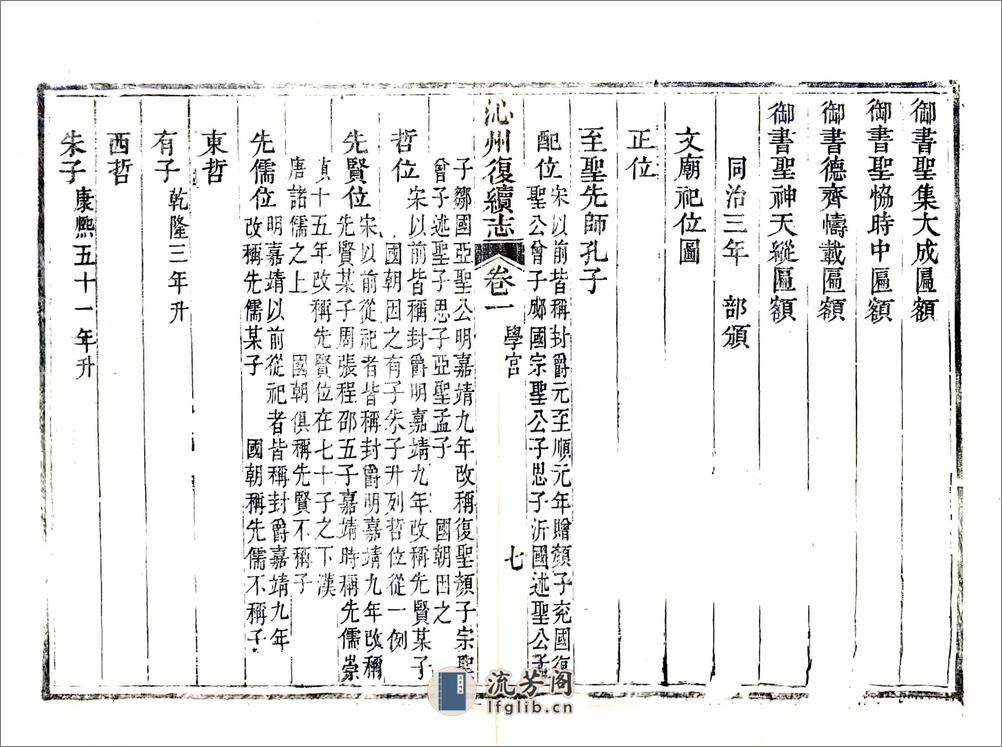 御書聖集大成匾額
御書聖協時中匾額
御書德齊幬載匾額
御書聖神天縱匾額
同治三年　部頒
文廟祀位圖
正位
至聖先師孔子
配位宋以前皆稱封爵元至順元年贈顏子兗國復
聖公曾子郕國宗聖公子思子沂國述聖公孟
沁州復續志　卷一　學宮　七
子鄒國亞聖公明嘉靖九年改稱復聖顏子宗聖
曾子述聖子思子亞聖孟子　國朝因之
哲位宋以前皆稱封爵明嘉靖九年改稱先賢某子
國朝因之有子朱子升列哲位從一例
先賢位宋以前從祀者皆稱封爵明嘉靖九年改稱
先賢某子周張程邵五子嘉靖時稱先儒崇
禎十五年改稱先賢位在七十子之下漢
唐諸儒之上　國朝俱稱先賢不稱子
先儒位明嘉靖以前從祀者皆稱封爵嘉靖九年
改稱先儒某子　國朝稱先儒不稱子
東哲
有子乾隆三年升
西哲
朱子康熙五十一年升
流芳阁
lfglib.cn